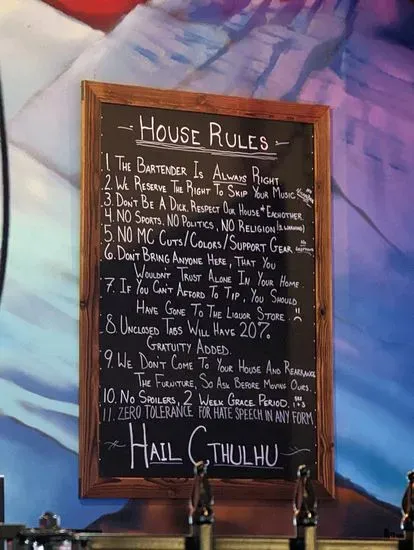 House Rules
1. The Bartender Is Always Right
2. We Reserve The Right To Skip Your Music
3. Don't Be A Dick, Respect Our House + Eachother
4. No Sports, No Politics, No Religion (1 Warning)
5. No MC Cuts/Colors/Support Gear No Exceptions
6. Don't Bring Anyone Here, That You
Wouldn't Trust Alone In Your Home.
7. If You Can't Afford To Tip, You Should
Have Gone To The Liquor Store. :)
8. Unclosed Tabs Will Have 20%
Gratuity Added.
9. We Don't Come To Your House And Rearrange
The Furniture, So Ask Before Moving Ours.
10. No Spoilers, 2 Week Grace Period.
11. ZERO TOLERANCE FOR HATE SPEECH IN ANY FORM
Hail Cthulhu